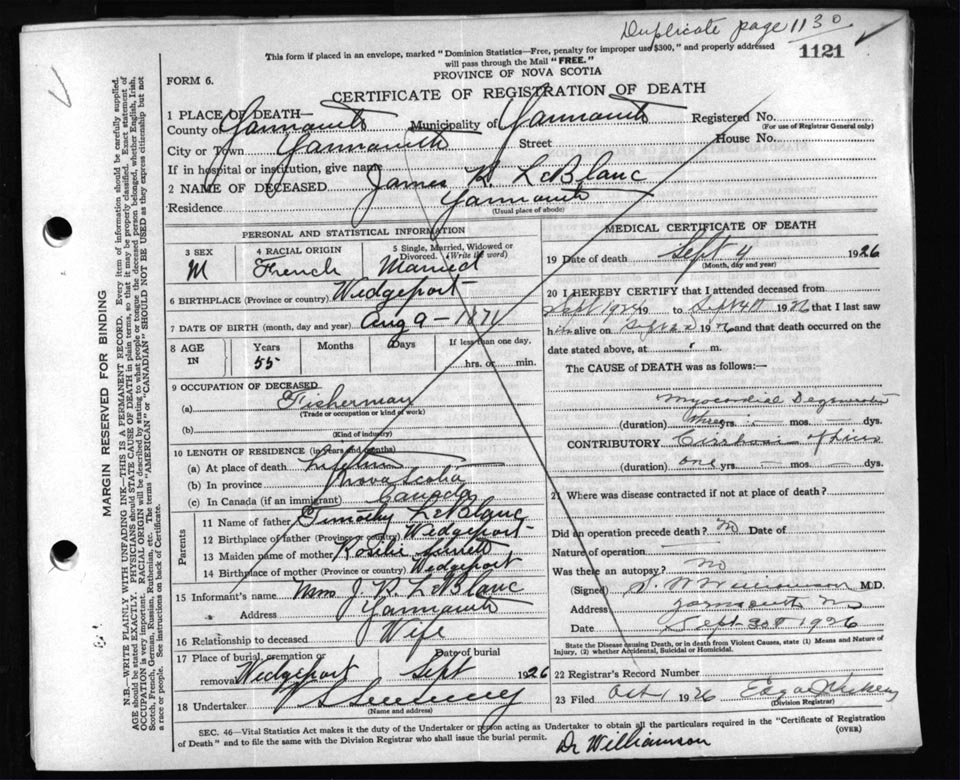 Duplicate page 1130
1121
This form if placed in an envelope, marked "Dominion Statistics—Free, penalty for improper use $300," and properly addressed
will pass through the Mail "FREE."
PROVINCE OF NOVA SCOTIA
FORM 6.
CERTIFICATE OF REGISTRATION OF DEATH
1 PLACE OF DEATH—
County of Yarmouth Municipality of Yarmouth Registered No.
(For use of Registrar General only)
City or Town Yarmouth Street House No.
If in hospital or institution, give name
2 NAME OF DECEASED James R. LeBlanc
Residence Yarmouth
(Usual place of abode)
PERSONAL AND STATISTICAL INFORMATION
3 SEX M
4 RACIAL ORIGIN French
5 Single, Married, Widowed or Divorced. (Write the word) Married
6 BIRTHPLACE (Province or country) Wedgeport
7 DATE OF BIRTH (month, day and year) Aug 9 - 1871
8 AGE IN Years 55 Months Days If less than one day, hrs. or min.
9 OCCUPATION OF DECEASED
(a) Fisherman
(Trade or occupation or kind of work)
(b)
(Kind of industry)
10 LENGTH OF RESIDENCE (in years and months)
(a) At place of death
(b) In province Nova Scotia
(c) In Canada (if an immigrant) Canada
Parents
11 Name of father Timothy LeBlanc
12 Birthplace of father (Province or country) Wedgeport
13 Maiden name of mother Rosalie
14 Birthplace of mother (Province or country) Wedgeport
15 Informant's name Mrs J. R. LeBlanc
Address Yarmouth
16 Relationship to deceased Wife
17 Place of burial, cremation or removal Wedgeport Date of burial Sept 1926
18 Undertaker V S Sweeney
(Name and address)
MEDICAL CERTIFICATE OF DEATH
19 Date of death Sept 4 1926
(Month, day and year)
20 I HEREBY CERTIFY that I attended deceased from
Sept 1924 to Sept 4th 1926 that I last saw
him alive on Sept 1926 and that death occurred on
date stated above, at m.
The CAUSE of DEATH was as follows:—
Myocardial Degeneration
(duration) three yrs. mos. dys.
CONTRIBUTORY Cirrhosis of Liver
(duration) one yrs. mos. dys.
21 Where was disease contracted if not at place of death?
Did an operation precede death? No Date of
Nature of operation
Was there an autopsy? No
(Signed) S. W. Williamson M.D.
Address Yarmouth NS
Date Sept 30th 1926
State the Disease causing Death, or in death from Violent Causes, state (1) Means and Nature of
Injury, (2) whether Accidental, Suicidal or Homicidal.
22 Registrar's Record Number
23 Filed Oct 1 1926 Edgar
(Division Registrar)
SEC. 46—Vital Statistics Act makes it the duty of the Undertaker or person acting as Undertaker to obtain all the particulars required in the "Certificate of Registration
of Death" and to file the same with the Division Registrar who shall issue the burial permit.
(OVER)
Dr Williamson
MARGIN RESERVED FOR BINDING
N.B.—WRITE PLAINLY WITH UNFADING INK—THIS IS A PERMANENT RECORD. Every item of information should be carefully supplied.
AGE should be stated EXACTLY. PHYSICIANS should STATE CAUSE OF DEATH in plain terms, so that it may be properly classified. Exact statement of
OCCUPATION is very important. RACIAL ORIGIN will be described by stating to what people or tongue the deceased person belonged, whether English, Irish,
Scotch, French, German, Russian, Ruthenian, etc. The terms "AMERICAN" or "CANADIAN" SHOULD NOT BE USED as they express citizenship but not
a race or people. See instructions on back of Certificate.